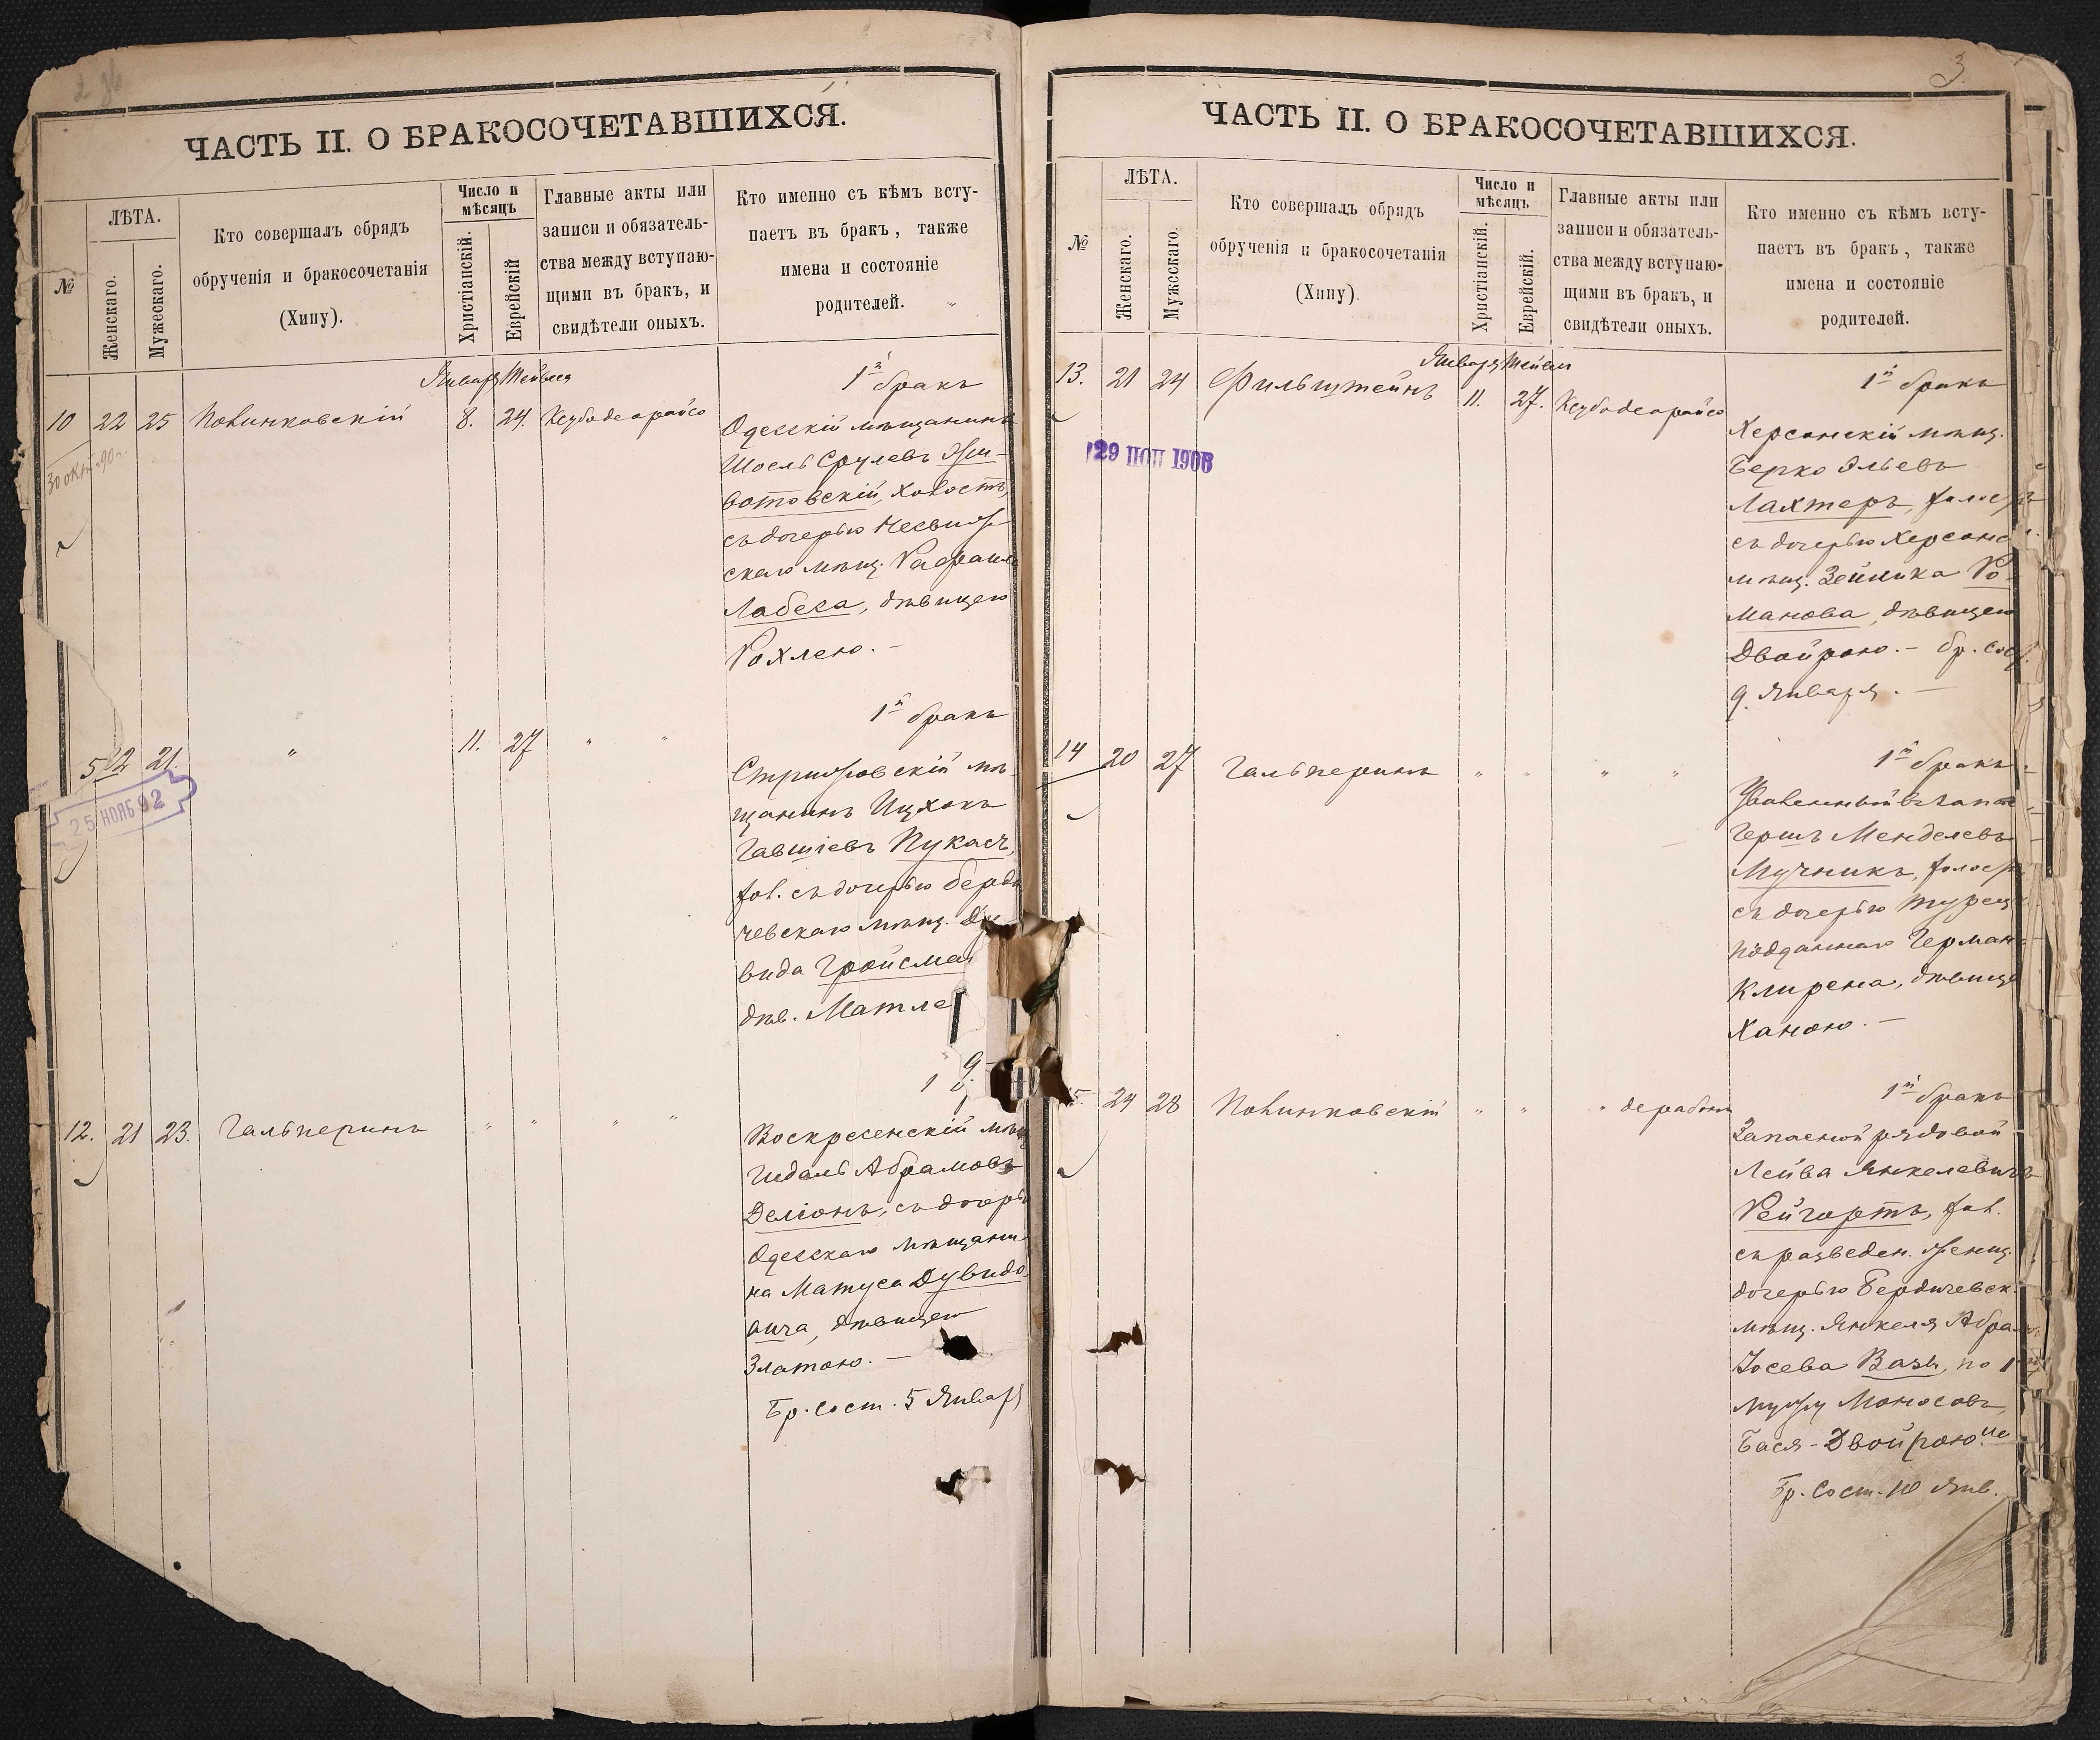 ЧАСТЬ II. О БРАКОСОЧЕТАВШИХСЯ.
№
ЛѢТА.
Женскаго.
Мужескаго.
Кто совершалъ обрядъ
обрученія и бракосочетанія
(Хипу).
Число и
мѣсяцъ
Христіанскій.
Еврейскій
Главные акты или
записи и обязатель-
ства между вступаю-
щими въ бракъ, и
свидѣтели оныхъ.
Кто именно съ кѣмъ всту-
паетъ въ бракъ, также
имена и состояніе
родителей.
Января Тейвеса
1й бракъ
10 22 25 Полинковскій 8. 24. Ксубо деорайсо
Одесскій мѣщанинъ
Шоель Срулевъ Жи-
вотовскій, холостъ,
съ дочерью
скаго мѣщ. Рафаила
Лабеса, дѣвицею
Рохлею. —
1й бракъ
" 11. 27 " "
2 21.
25 НОЯБ 92
мѣ-
щанинъ Ицхокъ
Гавшіевъ Пукасъ,
хол. съ дочерью Берди
чевскаго мѣщ. Ду-
вида Гройсман
дѣв. Матле
12. 21 23. Гальперинъ " " "
Воскресенскій мѣщ
Гидаль Абрамовъ
Деліонъ, съ дочерью
Одесскаго мѣщани
на Матуса Дувидо-
вича, дѣвицею
Златою. —
Бр. сост. 5 Января
3.
ЧАСТЬ II. О БРАКОСОЧЕТАВШИХСЯ.
№
ЛѢТА.
Женскаго.
Мужескаго.
Кто совершалъ обрядъ
обрученія и бракосочетанія
(Хипу).
Число и
мѣсяцъ
Христіанскій.
Еврейскій.
Главные акты или
записи и обязатель-
ства между вступаю-
щими въ бракъ, и
свидѣтели оныхъ.
Кто именно съ кѣмъ всту-
паетъ въ бракъ, также
имена и состояніе
родителей.
Января Тейвеса
1й бракъ
13. 21 24 Фильштейнъ 11. 27. Ксубо деорайсо
29 1906
Херсонскій мѣщ.
Берко Эльевъ
Лахтеръ, холостъ
съ дочерью Херсонс
мѣщ. Зейлика Ро-
манова, дѣвицею
Двойрою. — бр. сост.
9. Января. —
14 20 27 Гальперинъ " " " "
1й бракъ
Уволенный въ запас
Гершъ Менделевъ
Мучникъ, холост
съ дочерью Турец
подданнаго Герман
Клирена, дѣвице
Ханою. —
1й бракъ
5. 24 28 Полинковскій " " " дерабонн
Запасной рядовой
Лейва Янкелевичъ
Рейгортъ, хол.
съ разведен. женщ.
дочерью Бердичевск.
мѣщ. Янкеля Абрам
Іосева Вазъ, по 1
мужу Моносовъ,
Бася-Двойрою
Бр. сост. 10 Янв.